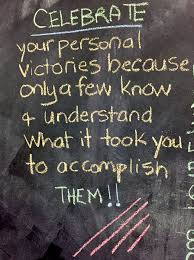 CELEBRATE
your personal
victories because
only a few know
& understand
what it took you
to accomplish
THEM!!